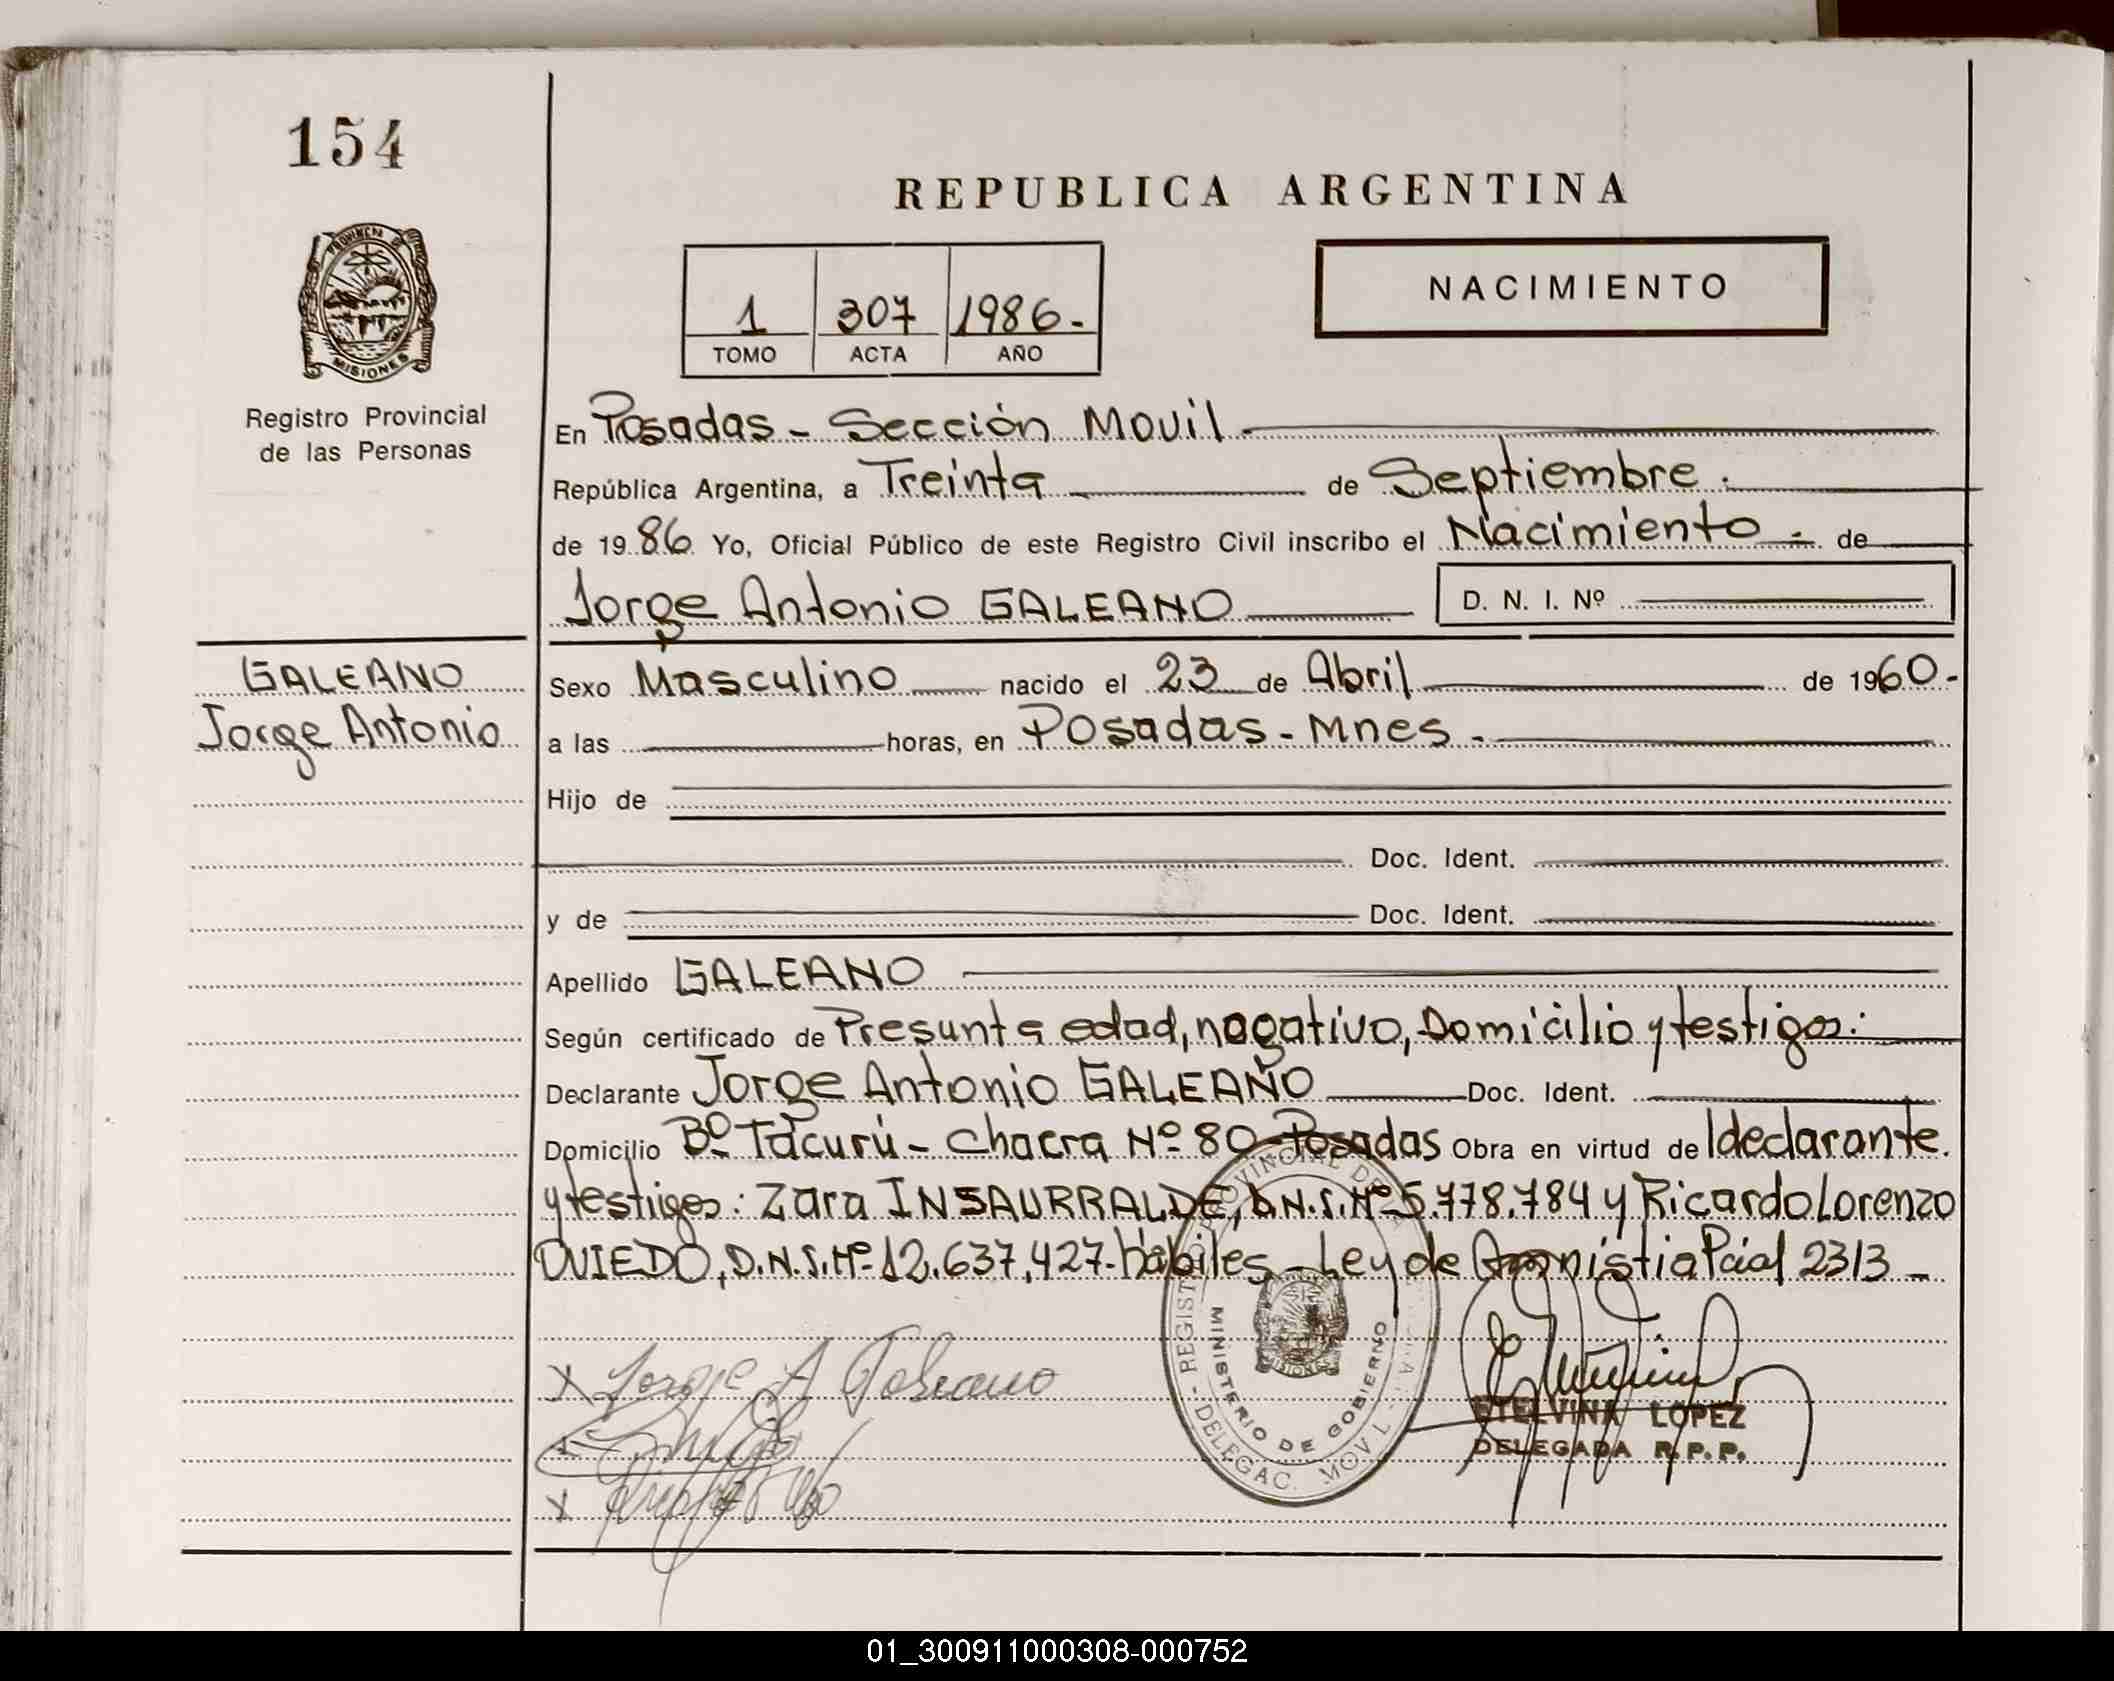 154
REPUBLICA ARGENTINA
PROVINCIA DE
MISIONES
Registro Provincial
de las Personas
1 307 1986.-
TOMO ACTA AÑO
NACIMIENTO
En Posadas - Sección Movil
República Argentina, a Treinta de Septiembre.
de 1986 Yo, Oficial Público de este Registro Civil inscribo el Nacimiento.- de
Jorge Antonio GALEANO D. N. I. Nº
GALEANO
Jorge Antonio
Sexo Masculino nacido el 23 de Abril de 1960.-
a las horas, en Posadas - Mnes.-
Hijo de
Doc. Ident.
y de Doc. Ident.
Apellido GALEANO
Según certificado de Presunta edad, negativo, Domicilio y testigos:
Declarante Jorge Antonio GALEANO Doc. Ident.
Domicilio Bº Tacurú - Chacra Nº 80 - Posadas Obra en virtud de ldeclarante.
y testigos: Zara INSAURRALDE, D.N.I. Nº 5.778.784 y Ricardo Lorenzo
OVIEDO, D.N.I. Nº 12.637.427- hábiles - Ley de Amnistia Pcial 2313 -
X Jorge A Galeano
X
REGISTRO PROVINCIAL DE
MINISTERIO DE GOBIERNO
DELEGAC. MOVIL
ETELVINA LOPEZ
DELEGADA R.P.P.
01_300911000308-000752